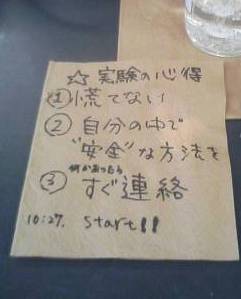 ☆実験の心得
① 慌てない
② 自分の中で
"安全"な方法を
何かあったら
③ すぐ連絡
10:27. start!!